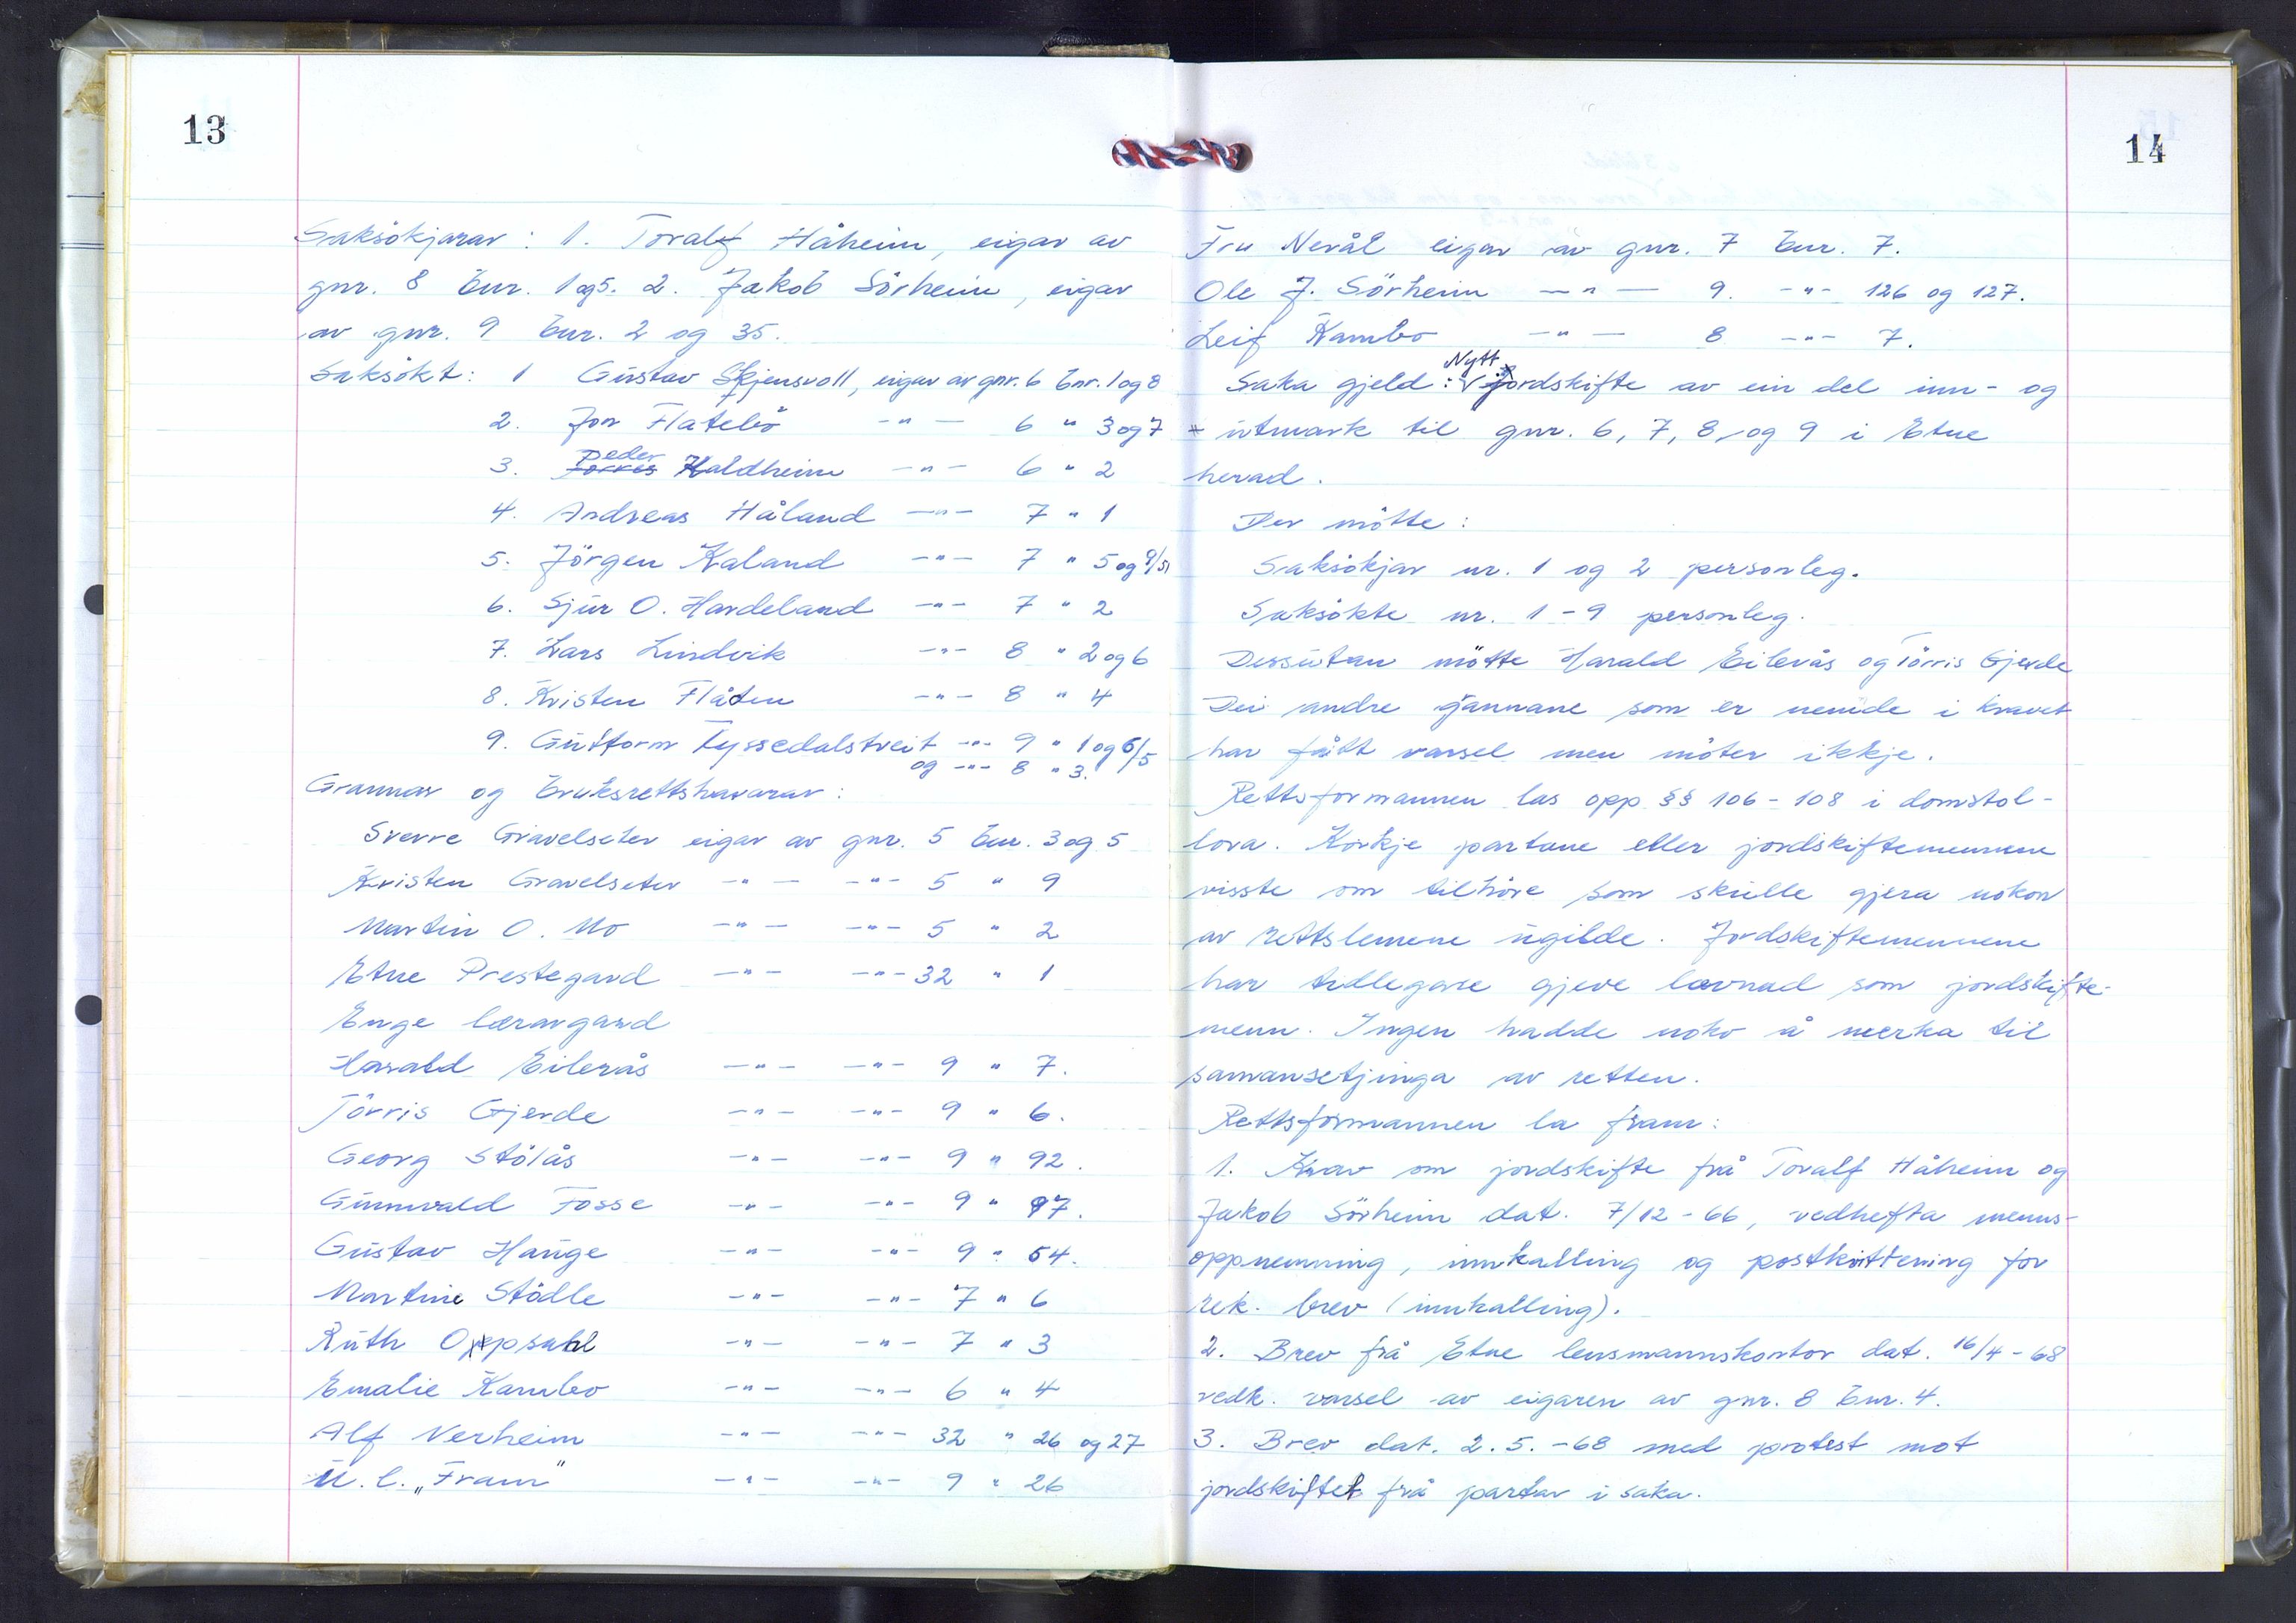 13
Saksökjarar: 1. Toralf Håheim, eigar av
gnr. 8 bnr. 1 og 5. 2. Jakob Sörheim, eigar
av gnr. 9 bnr. 2 og 35.
Saksökt: 1 Gustav Skjensvoll, eigar av gnr. 6 bnr. 1 og 8
2. Jon Flatebö -"- 6 " 3 og 7
3. Peder Haldheim -"- 6 " 2
4. Andreas Håland -"- 7 " 1
5. Jörgen Kaland -"- 7 " 5 og 9/51
6. Sjur O. Hardeland -"- 7 " 2
7. Lars Lindvik -"- 8 " 2 og 6
8. Kristen Flåten -"- 8 " 4
9. Guttorm Tyssedalstveit -"- 9 " 1 og 6/5
og -"- 8 " 3.
Grannar og bruksrettshavarar:
Sverre Gravelseter eigar av gnr. 5 bnr. 3 og 5
Kristen Gravelseter -"- -"- 5 " 9
Martin O. Mo -"- -"- 5 " 2
Etne Prestegard -"- -"- 32 " 1
Enge lærargard
Harald Eilerås -"- -"- 9 " 7.
Törris Gjerde -"- -"- 9 " 6.
Georg Stölås -"- -"- 9 " 92.
Gunnvald Fosse -"- -"- 9 " 97.
Gustav Hauge -"- -"- 9 " 54.
Martine Stödle -"- -"- 7 " 6
Ruth Oppsahl -"- -"- 7 " 3
Emalie Kambo -"- -"- 6 " 4
Alf Nerheim -"- -"- 32 " 26 og 27
U.l. „Fram" -"- -"- 9 " 26
14
Fru Nerål eigar av gnr. 7 bnr. 7.
Ole J. Sörheim -"- 9. -"- 126 og 127.
Leif Kambo -"- 8 -"- 7.
Nytt
Saka gjeld: jordskifte av ein del inn- og
utmark til gnr. 6, 7, 8 og 9 i Etne
herad.
Der mötte:
Saksökjar nr. 1 og 2 personleg.
Saksökte nr. 1-9 personleg.
Dessutan mötte Harald Eilerås og Törris Gjerde
Dei andre grannane som er nemde i kravet
har fått varsel men möter ikkje.
Rettsformannen las opp §§ 106-108 i domstol-
lova. Korkje partane eller jordskiftemennene
visste om tilhöve som skulle gjera nokon
av rettslemene ugilde. Jordskiftemennene
har tidlegare gjeve lovnad som jordskifte-
menn. Ingen hadde noko å merka til
samansetjinga av retten.
Rettsformannen la fram:
1. Krav om jordskifte frå Toralf Håheim og
Jakob Sörheim dat. 7/12-66, vedhefta menns-
oppnemning, innkalling og postkvittering for
rek. brev (innkalling).
2. Brev frå Etne lensmannskontor dat. 16/4-68
vedk. varsel av eigaren av gnr. 8 bnr. 4.
3. Brev dat. 2.5.-68 med protest mot
jordskiftet frå partar i saka.